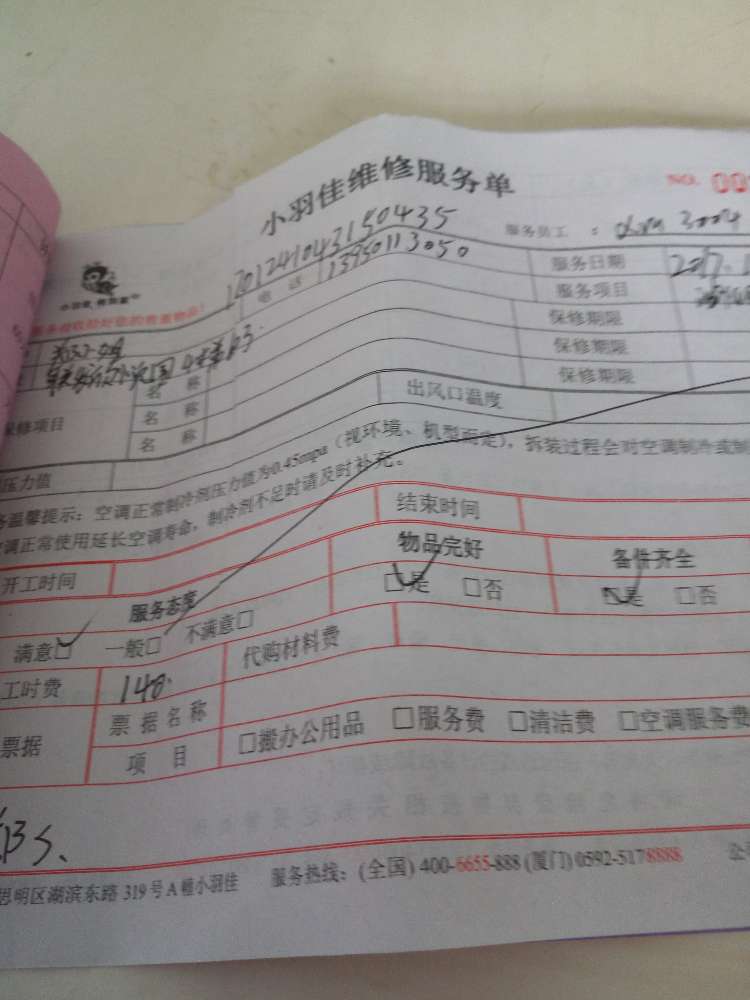 小羽佳维修服务单
NO. 00
1201241043150435
服务员工 ：
电 话 13950113050
服务日期 2017.1
服务项目
保修期限
名 称 保修期限
名 称 保修期限
保修项目
名 称
压力值 出风口温度
务温馨提示：空调正常制冷剂压力值为0.45mpa（视环境、机型而定），拆装过程会对空调制冷或制
空调正常使用延长空调寿命，制冷剂不足时请及时补充。
开工时间 结束时间
服务态度 物品完好 备件齐全
满意□ 一般□ 不满意□ □是 □否 □是 □否
工时费 140. 代购材料费
票据 票据名称
项 目 □搬办公用品 □服务费 □清洁费 □空调服务费
思明区湖滨东路 319 号 A 幢小羽佳 服务热线：(全国) 400-6655-888 (厦门) 0592-5178888